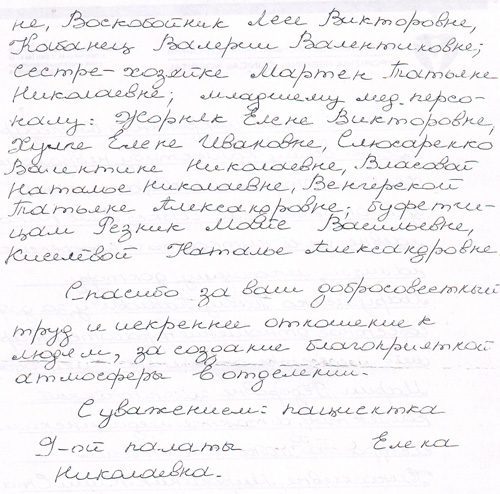 не, Воскобойник Лесе Викторовне,
Кабанец Валерии Валентиновне;
сестре-хозяйке Мартен Татьяне
Николаевне; младшему мед. персо-
налу: Жорняк Елене Викторовне,
Хулпе Елене Ивановне, Слюсаренко
Валентине Николаевне, Власовой
Наталье Николаевне, Венгерской
Татьяне Александровне; буфетчи-
цам Резник Майе Васильевне,
Киселёвой Наталье Александровне
Спасибо за ваш добросовестный
труд и искреннее отношение к
людям, за создание благоприятной
атмосферы в отделении.
С уважением: пациентка
9-ой палаты Елена
Николаевна.